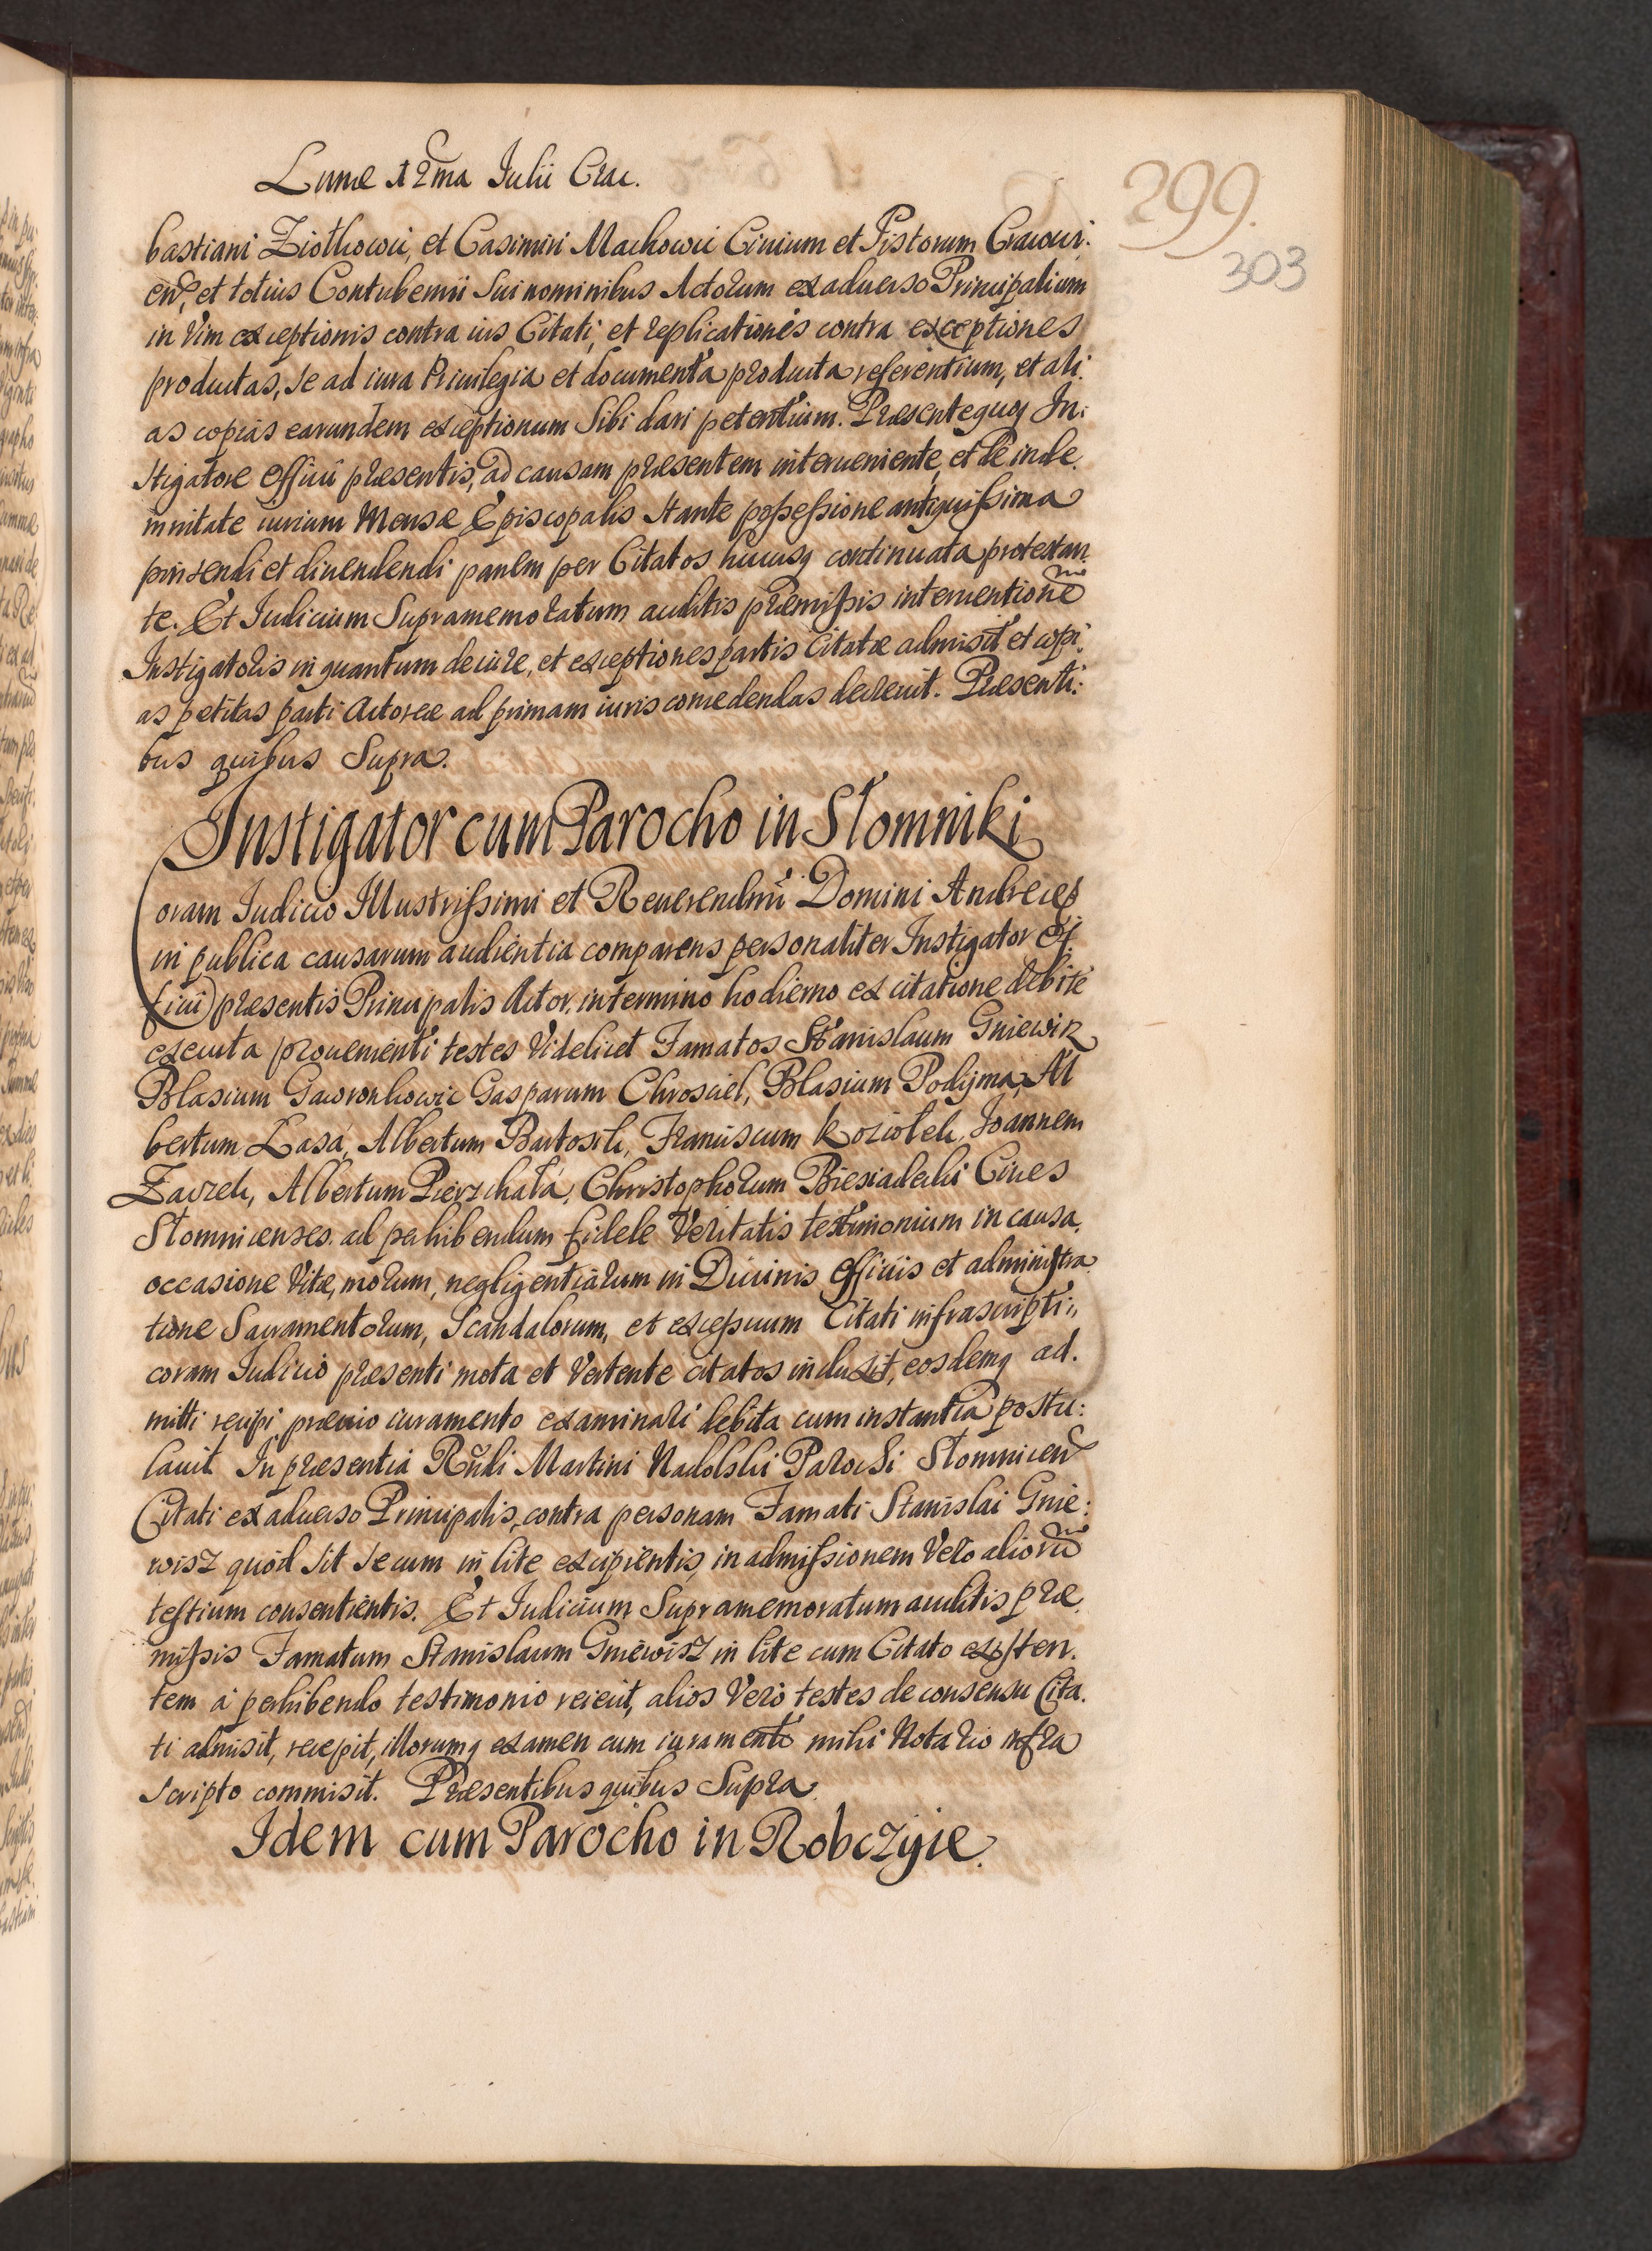 Lunæ 12ma Iulii Crac.
299.
303
bastiani Ziołkowic, et Casimiri Machowic Ciuium et Pistorum Cracoui:
en, et totius Contubernii Sui nominibus Actorum ex aduerso Principalium
in Vim exceptionis contra ius Citati, et replicationis contra exceptiones
productas, se ad iura Priuilegia et documenta producta referentium, et ali:
as copias earundem exceptionum Sibi dari petentium. Præsenteque In:
stigatore Officii præsentis, ad causam præsentem interueniente, et de inde
mnitate iurium Mensæ Episcopalis Stante possessione antiquissima
pinsendi et diuendendi panem per Citatos hucusq continuata protestan
te. Et Iudicium Supramemoratum auditis præmissis interuentione
Instigatoris in quantum de iure, et exceptiones partis Citatæ admisit et copi:
as petitas parti Actoreæ ad primam iuris concedendas decreuit. Præsenti:
bus quibus Supra.
Instigator cum Parocho in Słomniki
Coram Iudicio Illustrissimi et Reuerendmi Domini Andreæ
in publica causarum audientia comparens personaliter Instigator Of
ficii præsentis Principalis Actor, in termino hodierno ex citatione debite
executa prouenienti testes Videlicet Famatos Stanislaum Gniewisz
Blasium Gawronkowic Gasparum Chrosciel, Blasium Podyma, Al
bertum Łasa, Albertum Bartosik, Franciscum Koziołek, Joannem
Zawzek, Albertum Pierzchała, Christophorum Biesiadecki Ciues
Słomnicenses. ad perhibendum fidele Veritatis testimonium in causa
occasione Vitæ, morum, negligentiarum in Diuinis Officiis et administra
tione Sacramentorum, Scandalorum, et excessuum Citati infrascripti,
coram Iudicio præsenti mota et Vertente citatos induxit, eosdemq ad.
mitti recipi prævio iuramento examinari debita cum instantia postu:
lauit. In præsentia Rndi Martini Nadolski Parochi Słomnicen
Citati ex aduerso Principalis, contra personam Famati Stanislai Gnie:
wisz quod sit secum in lite excipientis, in admissionem Vero aliorū
testium consentientis. Et Iudicium Supramemoratum auditis præ
missis Famatum Stanislaum Gniewisz in lite cum Citato existen.
tem à perhibendo testimonio reiecit, alios Verò testes de consensu Cita.
ti admisit, recepit, illorumq examen cum iuramento mihi Notario infra
scripto commisit. Præsentibus quibus Supra.
Idem cum Parocho in Robczyie.